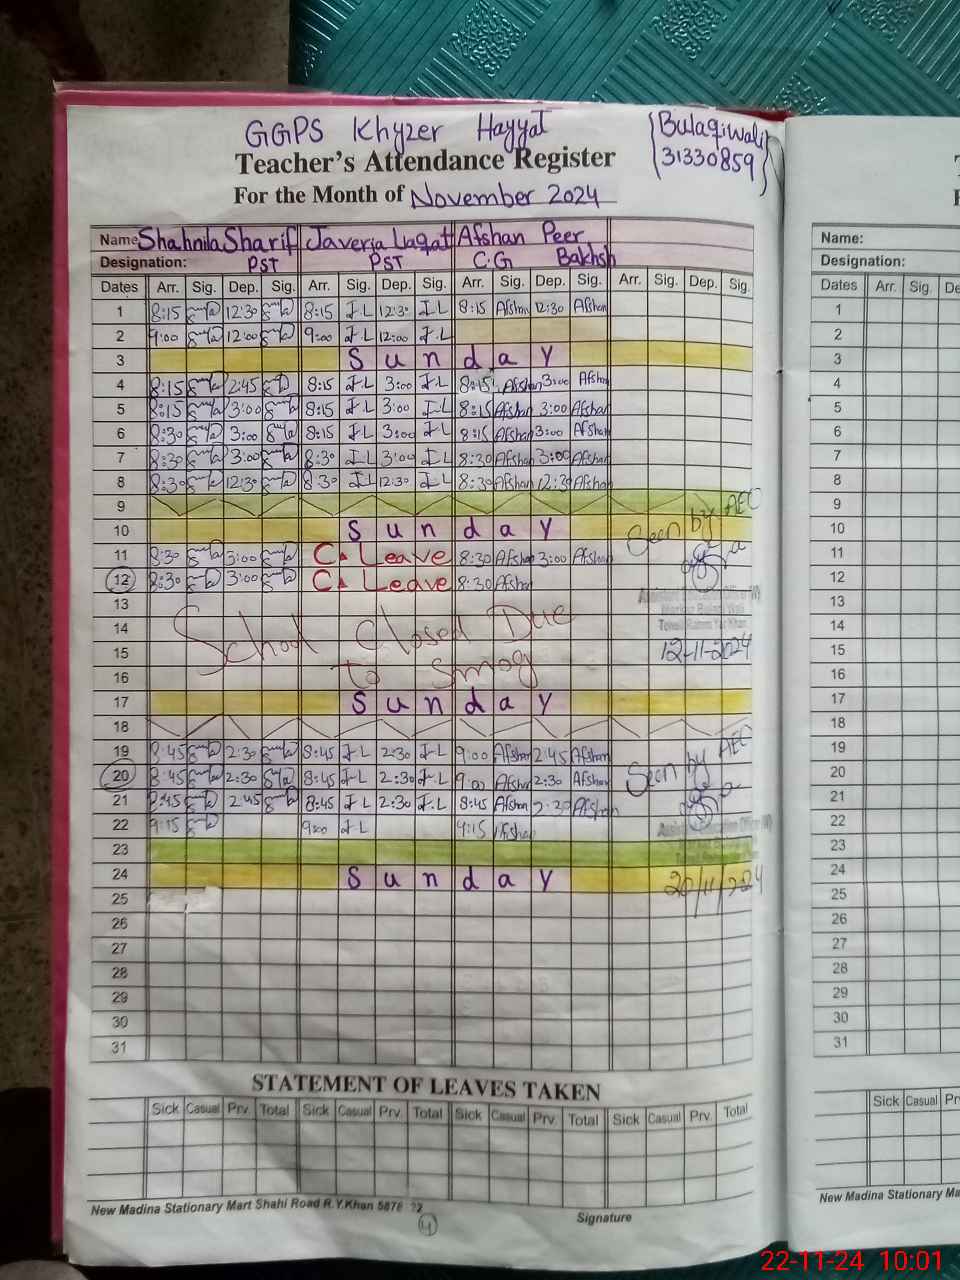 GGPS Khyzer Hayyat
(Bulaqiwali)
31330859
Teacher's Attendance Register
For the Month of November 2024
Name Shahnila Sharif Javeria Liaqat Afshan Peer
Designation: PST PST C.G Bakhsh
Dates Arr. Sig. Dep. Sig. Arr. Sig. Dep. Sig. Arr. Sig. Dep. Sig. Arr. Sig. Dep. Sig.
1 8:15 12:30 8:15 J.L 12:30 J.L 8:15 Afshan 12:30 Afshan
2 9:00 12:00 9:00 J.L 12:00 J.L
3 Sunday
4 8:15 2:45 8:15 J.L 3:00 J.L 8:15 Afshan 3:00 Afshan
5 8:15 3:00 8:15 J.L 3:00 J.L 8:15 Afshan 3:00 Afshan
6 8:30 3:00 8:15 J.L 3:00 J.L 8:15 Afshan 3:00 Afshan
7 8:30 3:00 8:30 J.L 3:00 J.L 8:30 Afshan 3:00 Afshan
8 8:30 12:30 8:30 J.L 12:30 J.L 8:30 Afshan 12:30 Afshan
9
10 Sunday
Seen by AEO
11 8:30 3:00 C. Leave 8:30 Afshan 3:00 Afshan
12 8:30 3:00 C. Leave 8:30 Afshan
Assistant Education Officer (W)
13
14 School Closed Due
15 12-11-2024
16 to Smog
17 Sunday
18
19 8:45 2:30 8:45 J.L 2:30 J.L 9:00 Afshan 2:45 Afshan
Seen by AEO
20 8:45 2:30 8:45 J.L 2:30 J.L 9:00 Afshan 2:30 Afshan
21 8:45 2:45 8:45 J.L 2:30 J.L 8:45 Afshan 2:30 Afshan
22 9:15 9:00 J.L 9:15 Afshan
23
24 Sunday
20/11/2024
25
26
27
28
29
30
31
STATEMENT OF LEAVES TAKEN
Sick Casual Prv. Total Sick Casual Prv. Total Sick Casual Prv. Total Sick Casual Prv. Total
New Madina Stationary Mart Shahi Road R.Y.Khan
4
Signature
Name:
Designation:
Dates Arr. Sig.
1
2
3
4
5
6
7
8
9
10
11
12
13
14
15
16
17
18
19
20
21
22
23
24
25
26
27
28
29
30
31
Sick Casual
New Madina Stationary
22-11-24 10:01